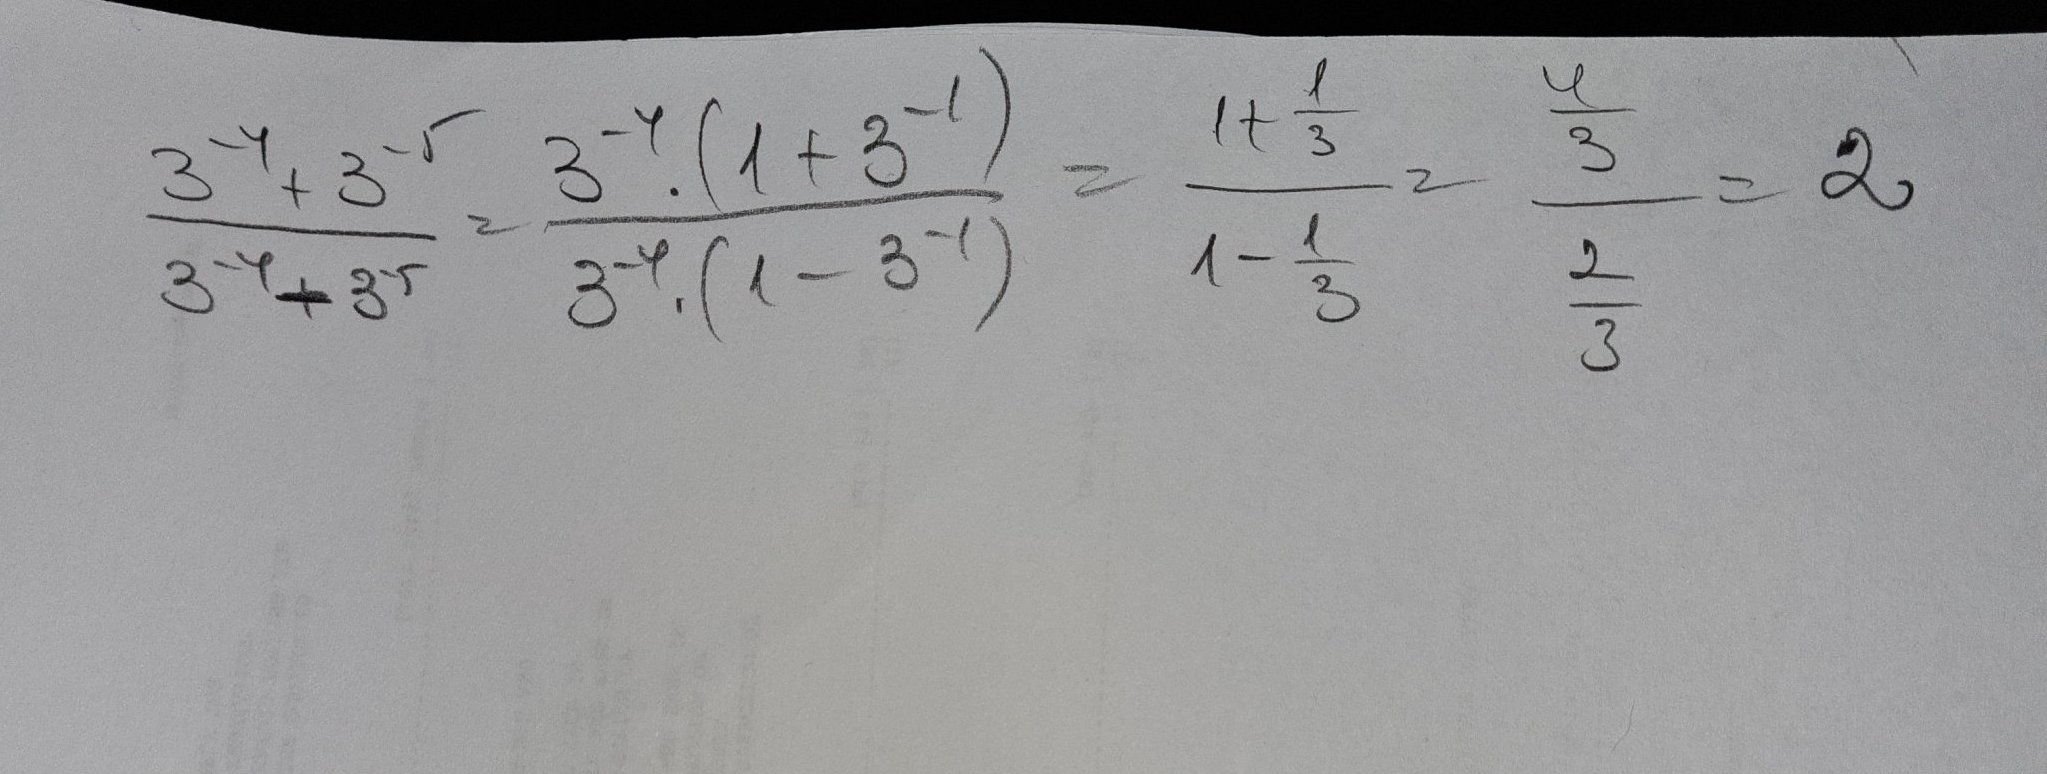 \frac{3^{-4}+3^{-5}}{3^{-4}-3^{-5}} = \frac{3^{-4}.(1+3^{-1})}{3^{-4}.(1-3^{-1})} = \frac{1+\frac{1}{3}}{1-\frac{1}{3}} = \frac{\frac{4}{3}}{\frac{2}{3}} = 2